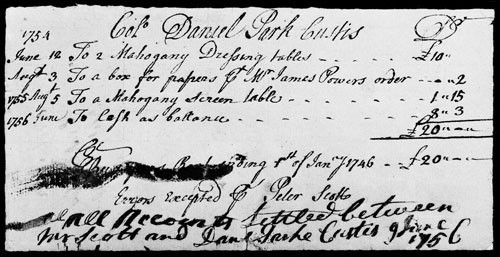 Colo. Daniel Park Custis Dr
1754
June 12 To 2 Mahogany Dressing tables - - - - - £10"
Augt 3 To a box for papers pr Mr James Powers order - - " 2
1755 Augt 5 To a Mahogany Screen table - - - - - 1"15
1756 June To Cash as ballance - - - - 8"3
£20"
Cr
ending 1st of Janry 1746 - - £20"
Errors Excepted pr Peter Scott
all Accounts settled between
Mr Scott and Danl Parke Custis 9 June
1756